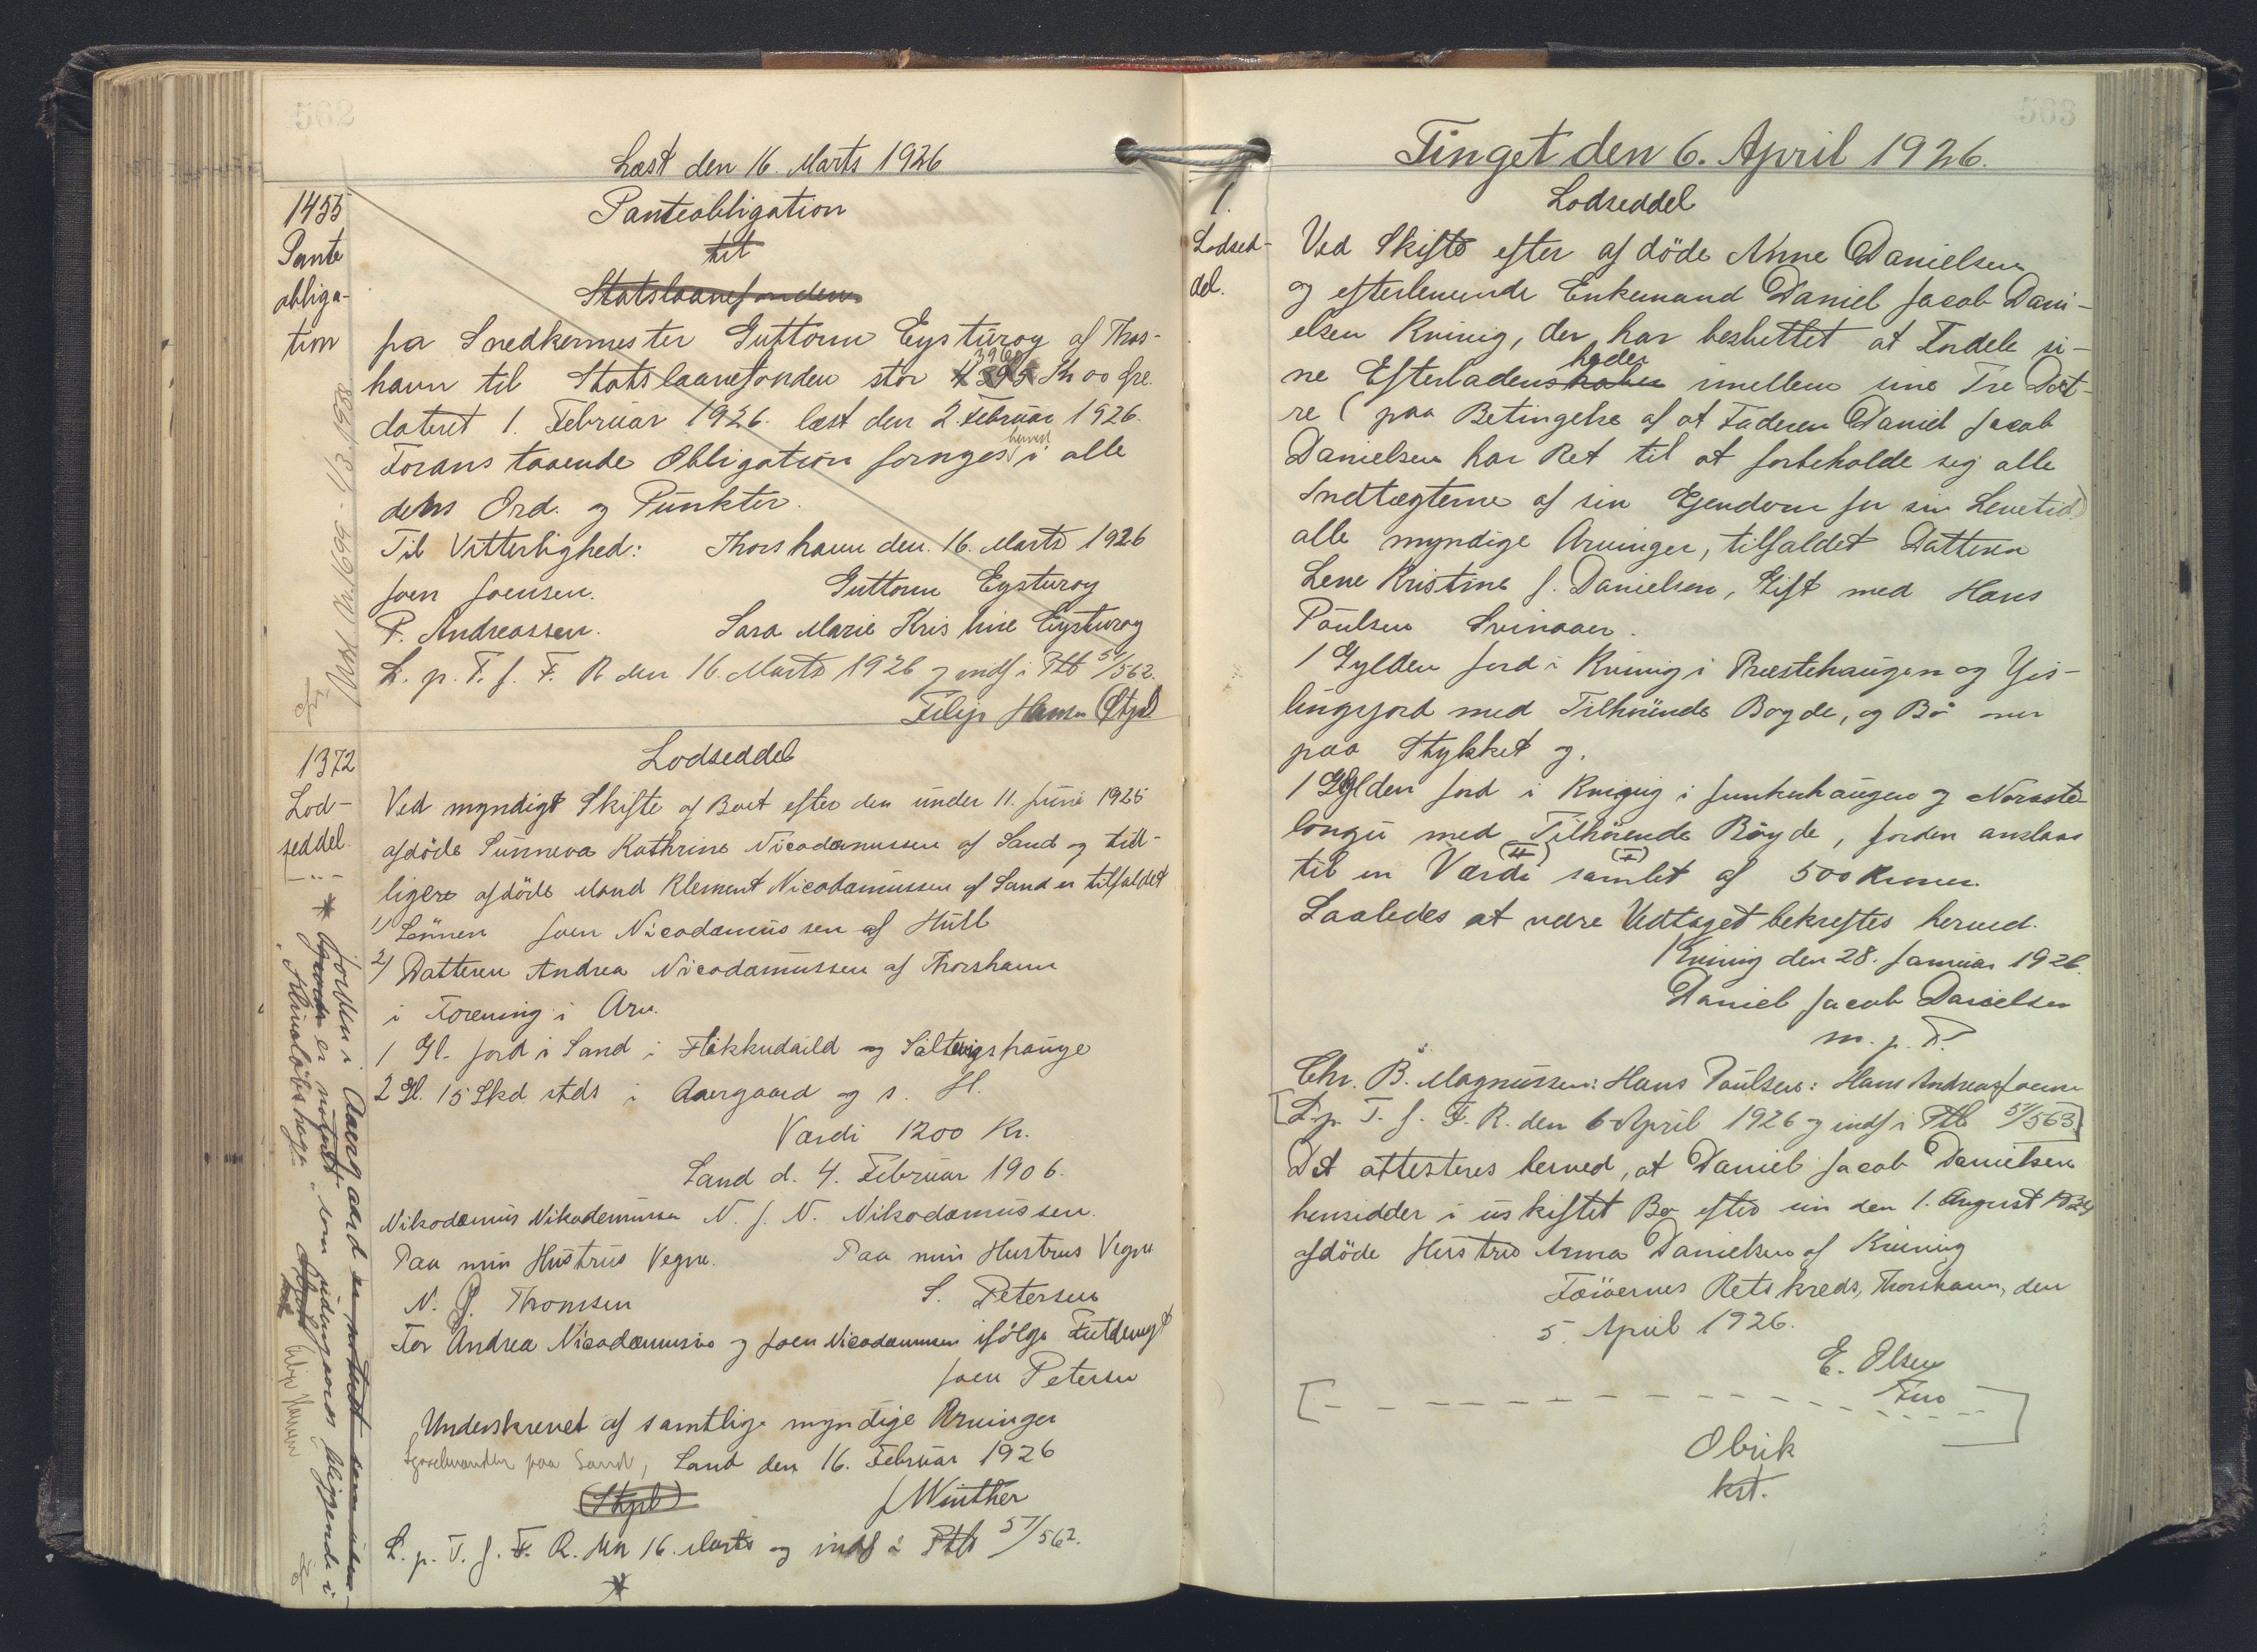 562
Læst den 16. Marts 1926
1455
Pante
obliga-
tion
Panteobligation
til
Statslaanefonden
fra Snedkermester Guttorm Eysturoy af Thors-
havn til Statslaanefonden stor Kr 00 Øre.
dateret 1. Februar 1926. læst den 2. Februar 1926.
Foranstaaende Obligation fornyes herved i alle
dens Ord. og Punkter.
Til Vitterlighed: Thorshavn den. 16. Marts 1926
Joen Joensen. Guttorm Eysturoy
P. Andreassen. Sara Marie Kristine Eysturoy
L. p. T. f. F. R den 16. Marts 1926 og indf i Ptb 51/562.
Filip Hansen (Stpl)
1372
Lod-
seddel.
Lodseddel
Ved myndigt Skifte af Boet efter den under 11. Juni 1925
afdöde Sunneva Kathrine Nicodamussen af Sand og tid-
ligere afdöde Mand Klement Nicodamussen af Sand er tilfaldet
1/ Sönnen Joen Nicodamussen af Hull
2/ Datteren Andrea Nicodamussen af Thorshavn
i Forening i Arv.
1 Gl. Jord i Sand i Flökkudaild og Saltvigshauge
2 Gl. 15 Skd. stds i Aaergaard og s. H.
Værdi 1200 Kr.
Sand d. 4. Februar 1906.
Nikodæmus Nikodemussen N. J. N. Nikodamussen.
Paa min Hustrus Vegne. Paa min Hustrus Vegne
N. J. Thomsen S. Petersen
For Andrea Nicodamussen og Joen Nicodamussen ifölge Fuldmagt
Joen Petersen
Underskrevet af samtlige myndige Arvinger
Sysselmanden paa Sand, Sand den 16. Februar 1926
(Stpl) J Winther
L. p. T. f. F. R. den 16. Marts og indf i Ptb 51/562.
*
* Jorden i Aaergaard er noteret som uden-
er noteret som udengaards beliggende i
Filip Hansen
563
Tinget den 6. April 1926.
1.
Lodsed-
del.
Lodseddel
Ved Skifte efter afdöde Anne Danielsen
og efterlevende Enkemand Daniel Jacob Dani-
elsen Kvivig, der har besluttet at Fordele si-
ne Efterladenskaber heder imellem sine Tre Döt-
re (paa Betingelse af at Faderen Daniel Jacob
Danielsen har Ret til at forbeholde sig alle
Indtægterne af sin Ejendom for sin Levetid)
alle myndige Arvinger, tilfaldet Datteren
Lene Kristine J. Danielsen, Gift med Hans
Poulsen Svinaaer.
1 Gylden Jord i Kvivig i Præstehaugen og Yvis-
lingsjord med Tilhörende Böyde, og Bö
paa Stykket og.
1 Gylden Jord i Kvivig i Junkerhaugen og Noraste-
longu med Tilhörende Böyde, Jorden anslaas
til en Værdi (II) samlet (I) af 500 Kroner.
Saaledes at være Vedtaget bekræftes herved.
Kvivig den 28. Januar 1926.
Daniel Jacob Danielsen
m. p. P.
Chr. B. Magnussen: Hans Poulsen: Hans Andreas Joensen
[L. p. T. f. F. R. den 6 April 1926 og indf i Ptb 51/563]
Det attesteres herved, at Daniel Jacob Danielsen
hensidder i uskiftet Bo efter sin den 1. August 1924
afdöde Hustru Anna Danielsen af Kvivig
Færöernes Retskreds, Thorshavn, den
5. April 1926.
E. Olsen
Obrik
kst.